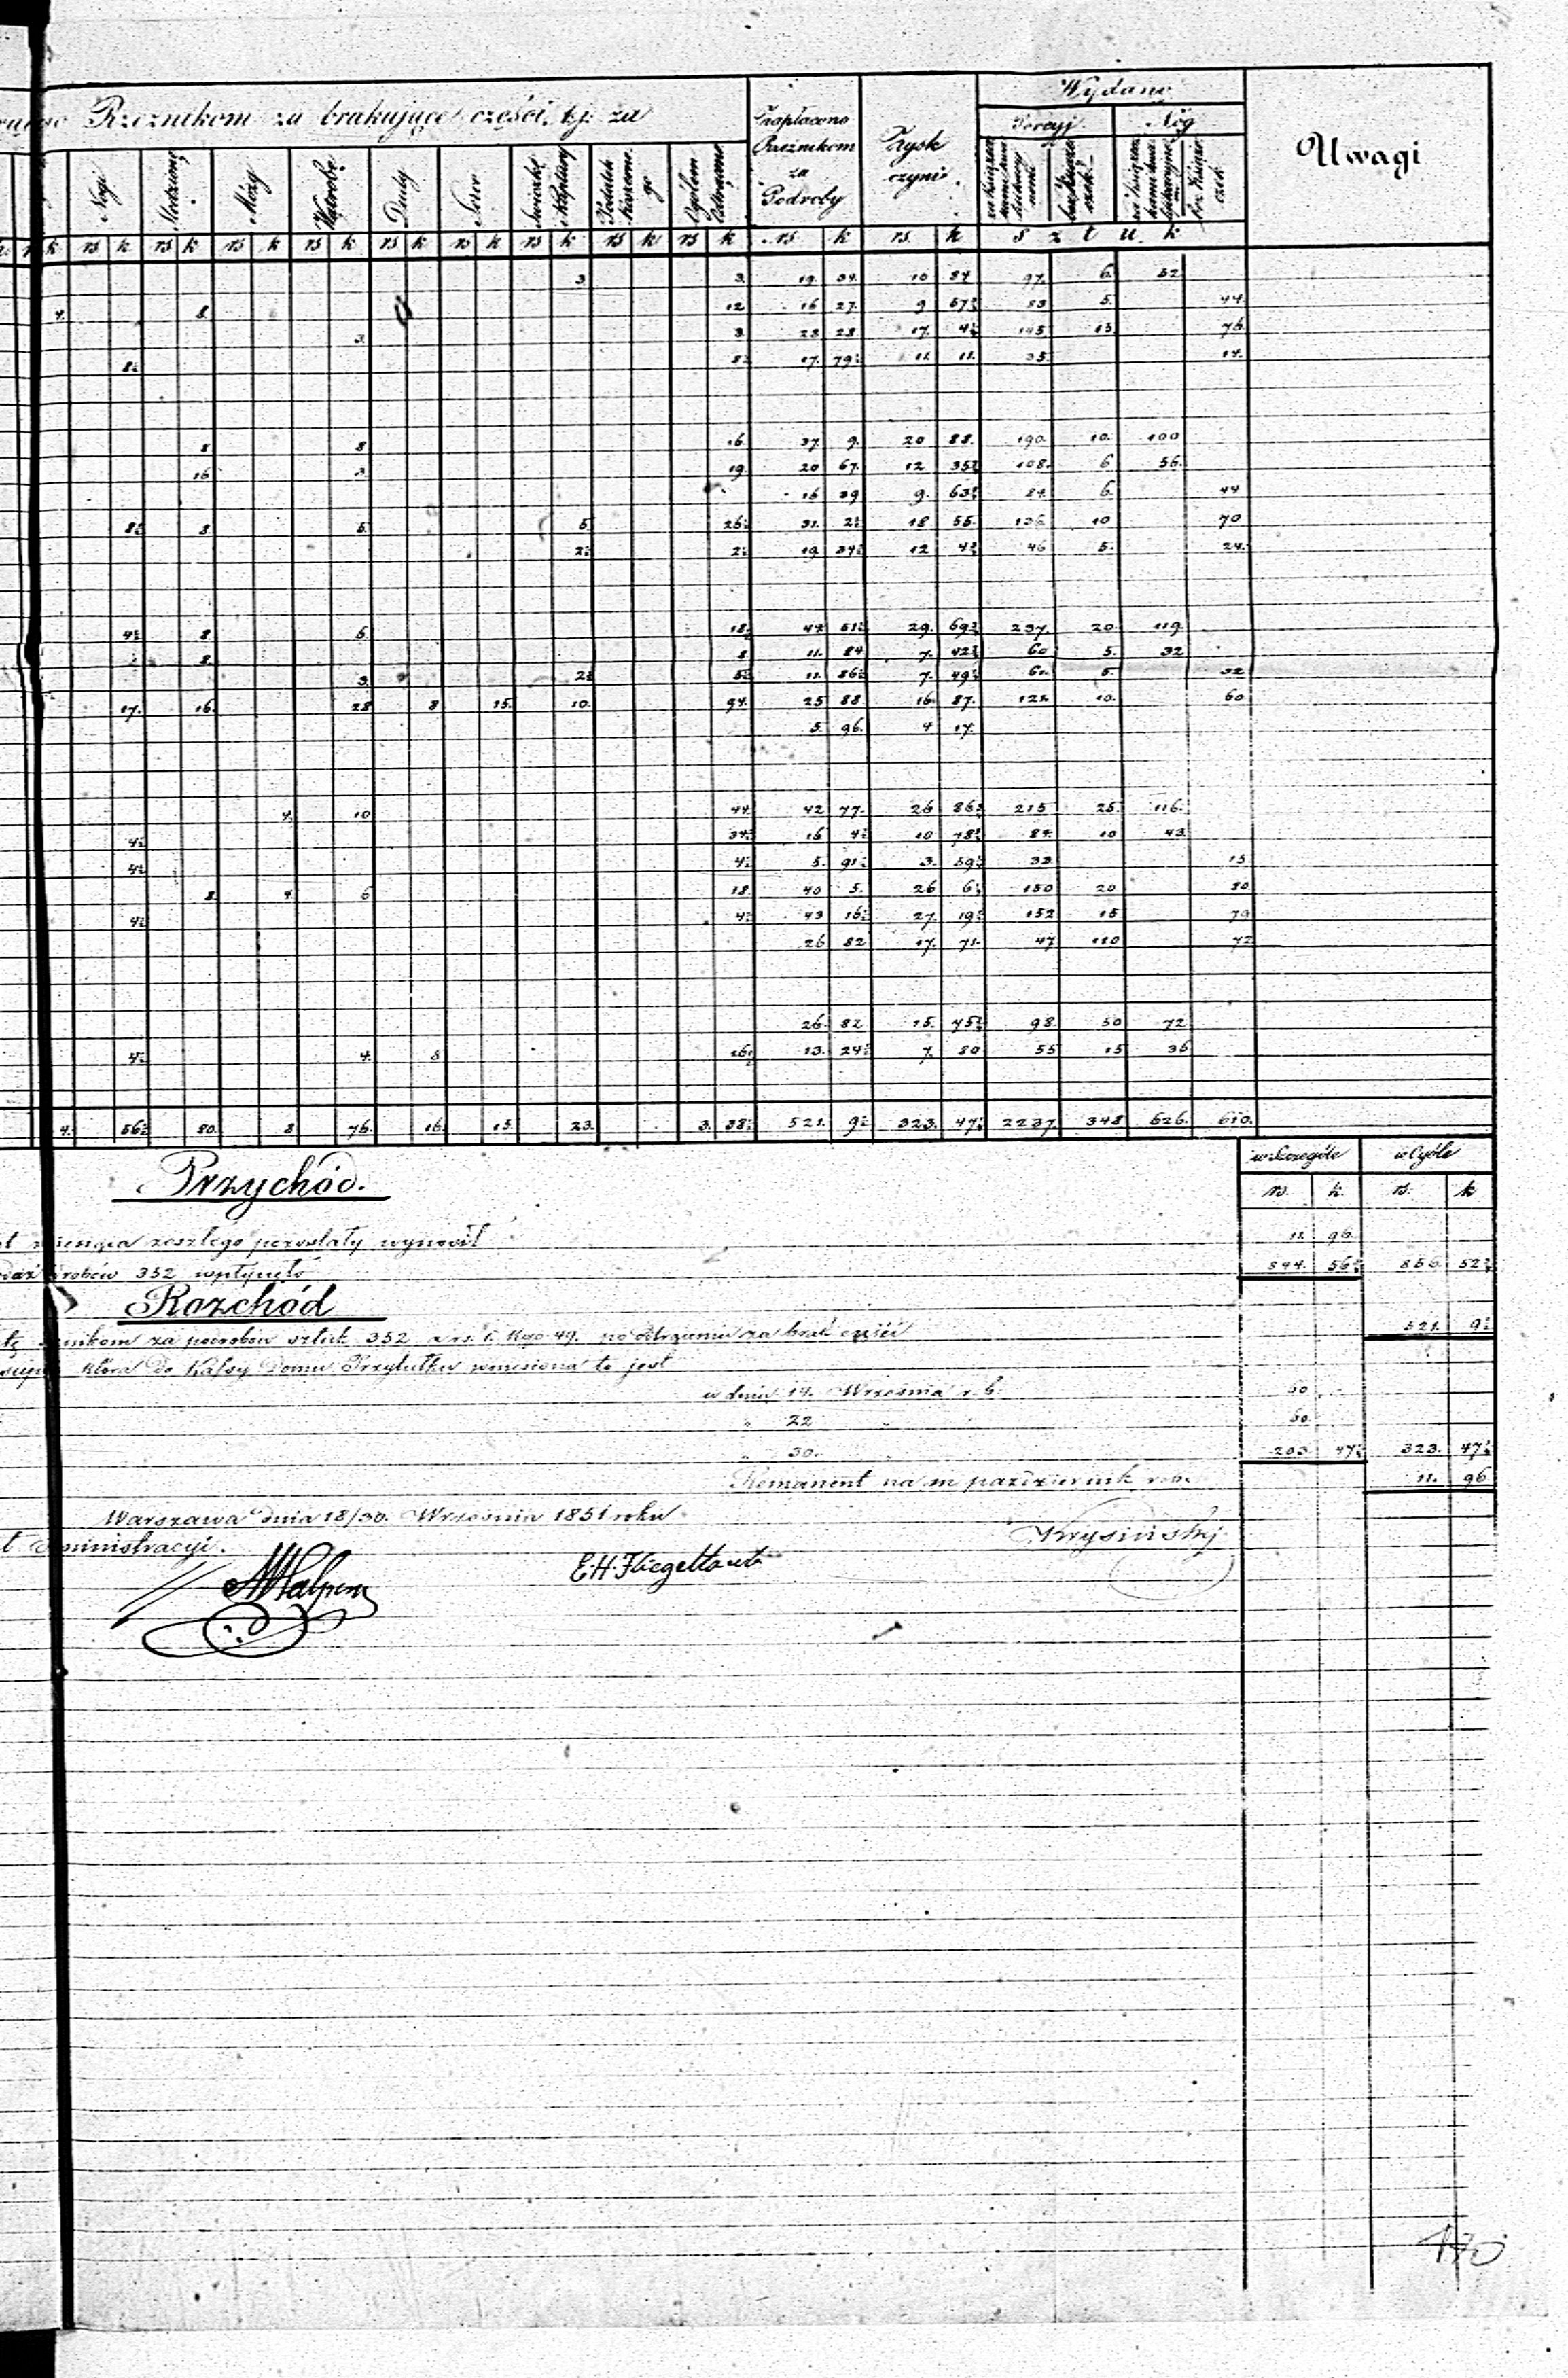 Rzeznikom za brakujące części, t.j. za
Zapłacono Rzeźnikom za Podroby
Zysk czyni
Wydano
Porcyj Nóg
Uwagi
Nogi Śledzionę Mózg Wątrobę Dudy Serce Ogółem
rs k rs k rs k rs k rs k rs k rs k rs k rs k rs. k rs. k s z t u k
3 3. 19. 34. 10 84 97. 6. 52
4. 8. 12 16 27. 9 57½ 83 5. 44.
3. 3. 23 28 17. 4½ 145. 13. 76.
8½ 8½ 17. 79½ 11. 11. 35. 14.
8 8 16. 37. 9. 20 88. 190. 10. 100
16 3. 19. 20 67. 12 35½ 108. 6 56.
16 39 9. 63½ 84. 6. 44
8½ 8. 5. 5. 26½ 31. 2½ 18 55. 136 10 70
2½ 2½ 19 34½ 12 4½ 46 5. 24.
4½ 8. 5. 18. 44 51½ 29. 69½ 237. 20. 119.
8. 8 11. 84 7. 42½ 60 5. 32
3. 2½ 5½ 11. 86½ 7. 49½ 61. 5. 32
17. 16. 28 8 15. 10. 94. 25 88 16 87. 122. 10. 60
5. 96. 4 17.
4. 10 44. 42 77. 26 86½ 215 25. 116.
4½ 34½ 16 4½ 10 78½ 84. 10 43.
4½ 4½ 5. 91½ 3. 59½ 33 15.
8. 4. 6 18. 40 5. 26 6½ 150 20 80
4½ 4½ 43 16½ 27. 19½ 152 15 79
26 82 17. 71. 47 110 72
26. 82 15. 45½ 98. 50 72
4½ 4. 8 16½ 13. 24½ 7. 80 55 15 36
4. 56½ 80. 8 76. 16. 15. 23. 3. 38½ 521. 9½ 323. 47½ 2237. 348 626. 610.
w Szczególe w Ogóle
Przychód.
rs. k. rs. k
miesiąca zeszłego pozostały wynosił 11. 96.
352 wpłynęło 844. 56½ 856. 52½
Rozchód
za podrobów sztuk 352 a rs. 1. kop. 49. po potrąceniu za brak części 521. 9½
która do Kassy Domu Przytułku wniesiona to jest
w dniu 14. Września r. b. 60.
" 22 " 60.
" 30. 203 47½ 323. 47½
Remanent na m. październik r. b. 11. 96
Warszawa dnia 18/30. Września 1851 roku
Administracyi.
MHalpern E. H. Fliegeltaub Krysiński
170